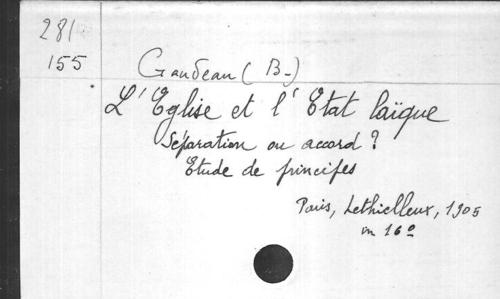 281
155
Gaudeau (B-)
L'Eglise et l'Etat laïque
Séparation ou accord ?
Etude de principes
Paris, Lethielleux, 1905
in 16º